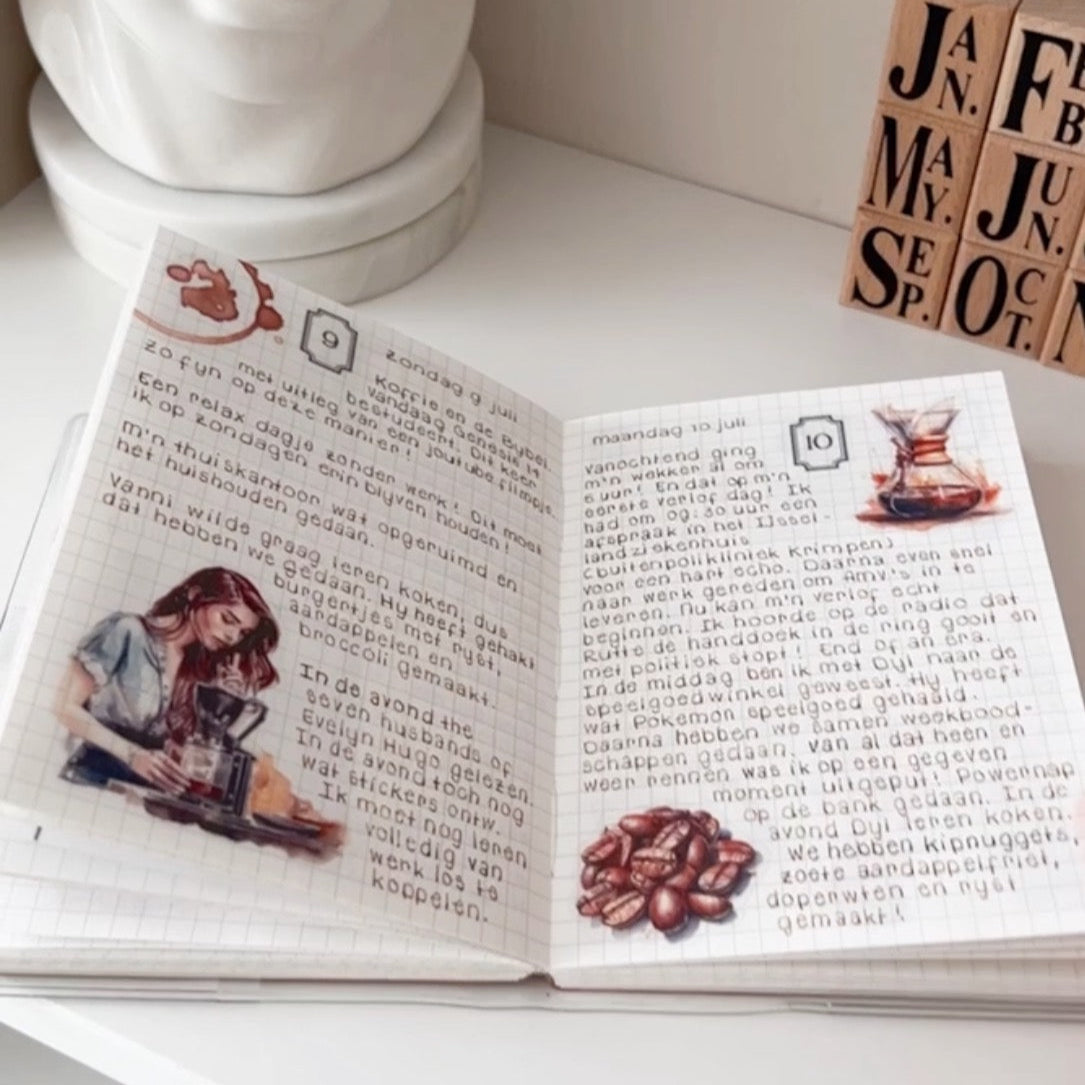 JAN.
FEB
MAY.
JUN.
SEP.
OCT.
N
9
zondag 9 juli
Koffie en de Bybel.
vandaag Genesis 14
bestudeert. Dit keer
met uitleg van een youtube filmpje.
zo fyn op deze manier!
Een relax dagje zonder werk! Dit moet
ik op zondagen erin blyven houden!
m'n thuiskantoor wat opgeruimd en
het huishouden gedaan.
Vanni wilde graag leren koken, dus
dat hebben we gedaan. Hy heeft gehakt
burgertjes met ryst,
aardappelen en
broccoli gemaakt.
In de avond the
seven husbands of
Evelyn Hugo gelezen.
In de avond toch nog
wat stickers ontw.
Ik moet nog leren
volledig van
werk los te
koppelen.
maandag 10 juli
10
vanochtend ging
m'n wekker al om
6 uur! En dat op m'n
eerste verlof dag! Ik
had om 09:30 uur een
afspraak in het IJssel-
landziekenhuis
(buitenpolikliniek Krimpen)
voor een hart echo. Daarna even snel
naar werk gereden om Amy's in te
leveren. Nu kan m'n verlof echt
beginnen. Ik hoorde op de radio dat
Rutte de handdoek in de ring gooit en
met politiek stopt! End of an era.
In de middag ben ik met Dyl naar de
speelgoedwinkel geweest. Hy heeft
wat Pokemon speelgoed gehaald.
Daarna hebben we samen weekbood-
schappen gedaan. van al dat heen en
weer rennen was ik op een gegeven
moment uitgeput! Powernap
op de bank gedaan. In de
avond Dyl leren koken.
We hebben kipnuggets,
zoete aardappelfriet,
doperwten en ryst
gemaakt!